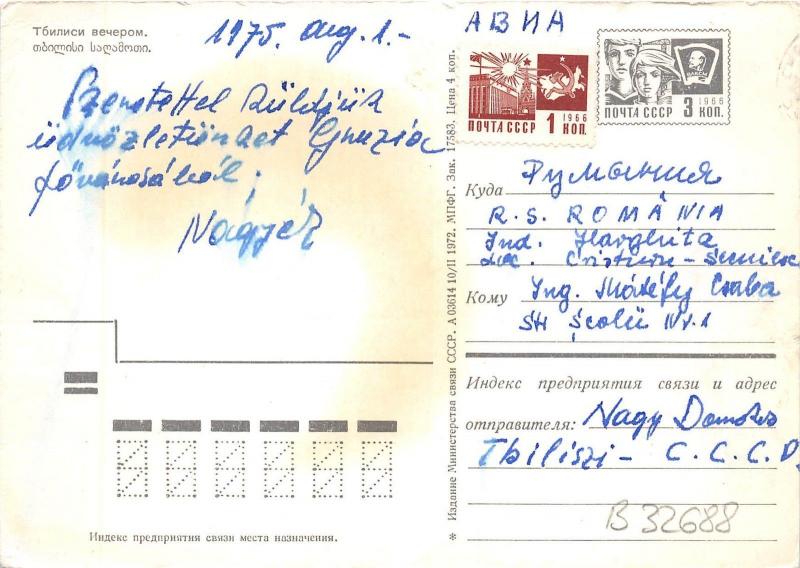 Тбилиси вечером.
თბილისი საღამოთი.
1975. aug. 1.-
Szeretettel küldjük
üdvözletünket Gruzia
fővárosából.
Nagyék
Издание Министерства связи СССР. А 03614 10/II 1972. МПФГ. Зак. 17583. Цена 4 коп.
АВИА
ПОЧТА СССР 1 КОП. 1966
ВЛКСМ
ПОЧТА СССР 3 КОП. 1966
Куда Румыния
R. S. ROMÂNIA
Jud. Harghita
loc. Cristuru-
Кому Ing. Máléfy Csaba
Str. Școlii Nr. 1
Индекс предприятия связи и адрес
отправителя: Nagy Domokos
Tbiliszi - C.C.C.P.
Индекс предприятия связи места назначения.
B 32688